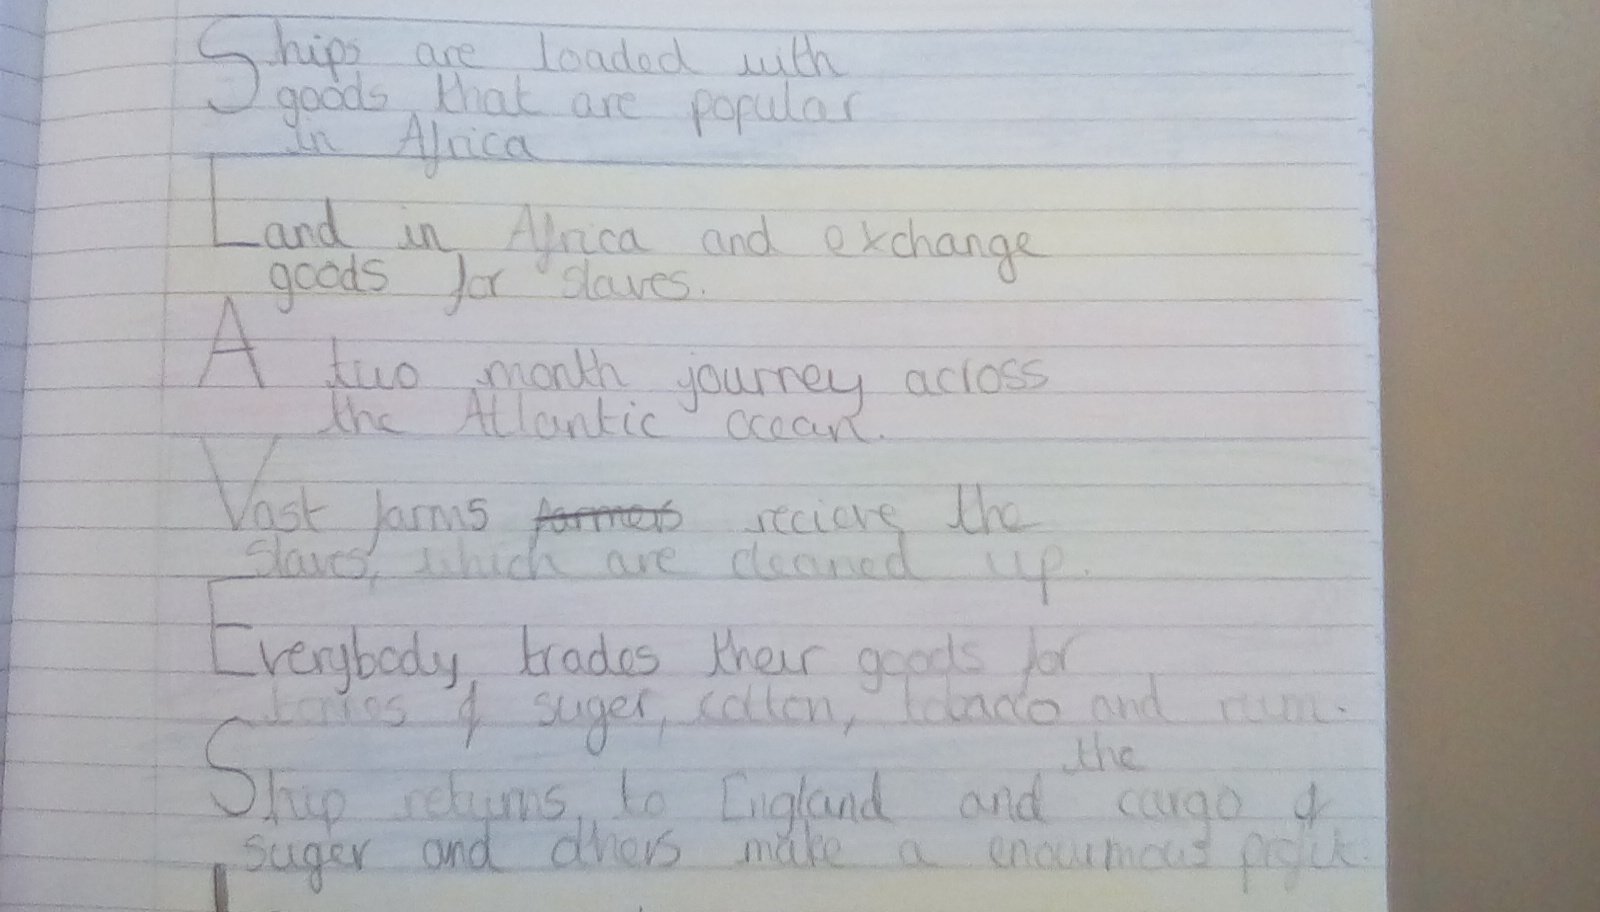 Ships are loaded with
goods that are popular
in Africa
Land in Africa and exchange
goods for slaves.
A two month journey across
the Atlantic ocean.
Vast farms farmers recieve the
slaves, which are cleaned up.
Everybody trades their goods for
of suger, cotton, tobacco and rum.
the
Ship returns to England and cargo of
suger and others make a enourmous profit.